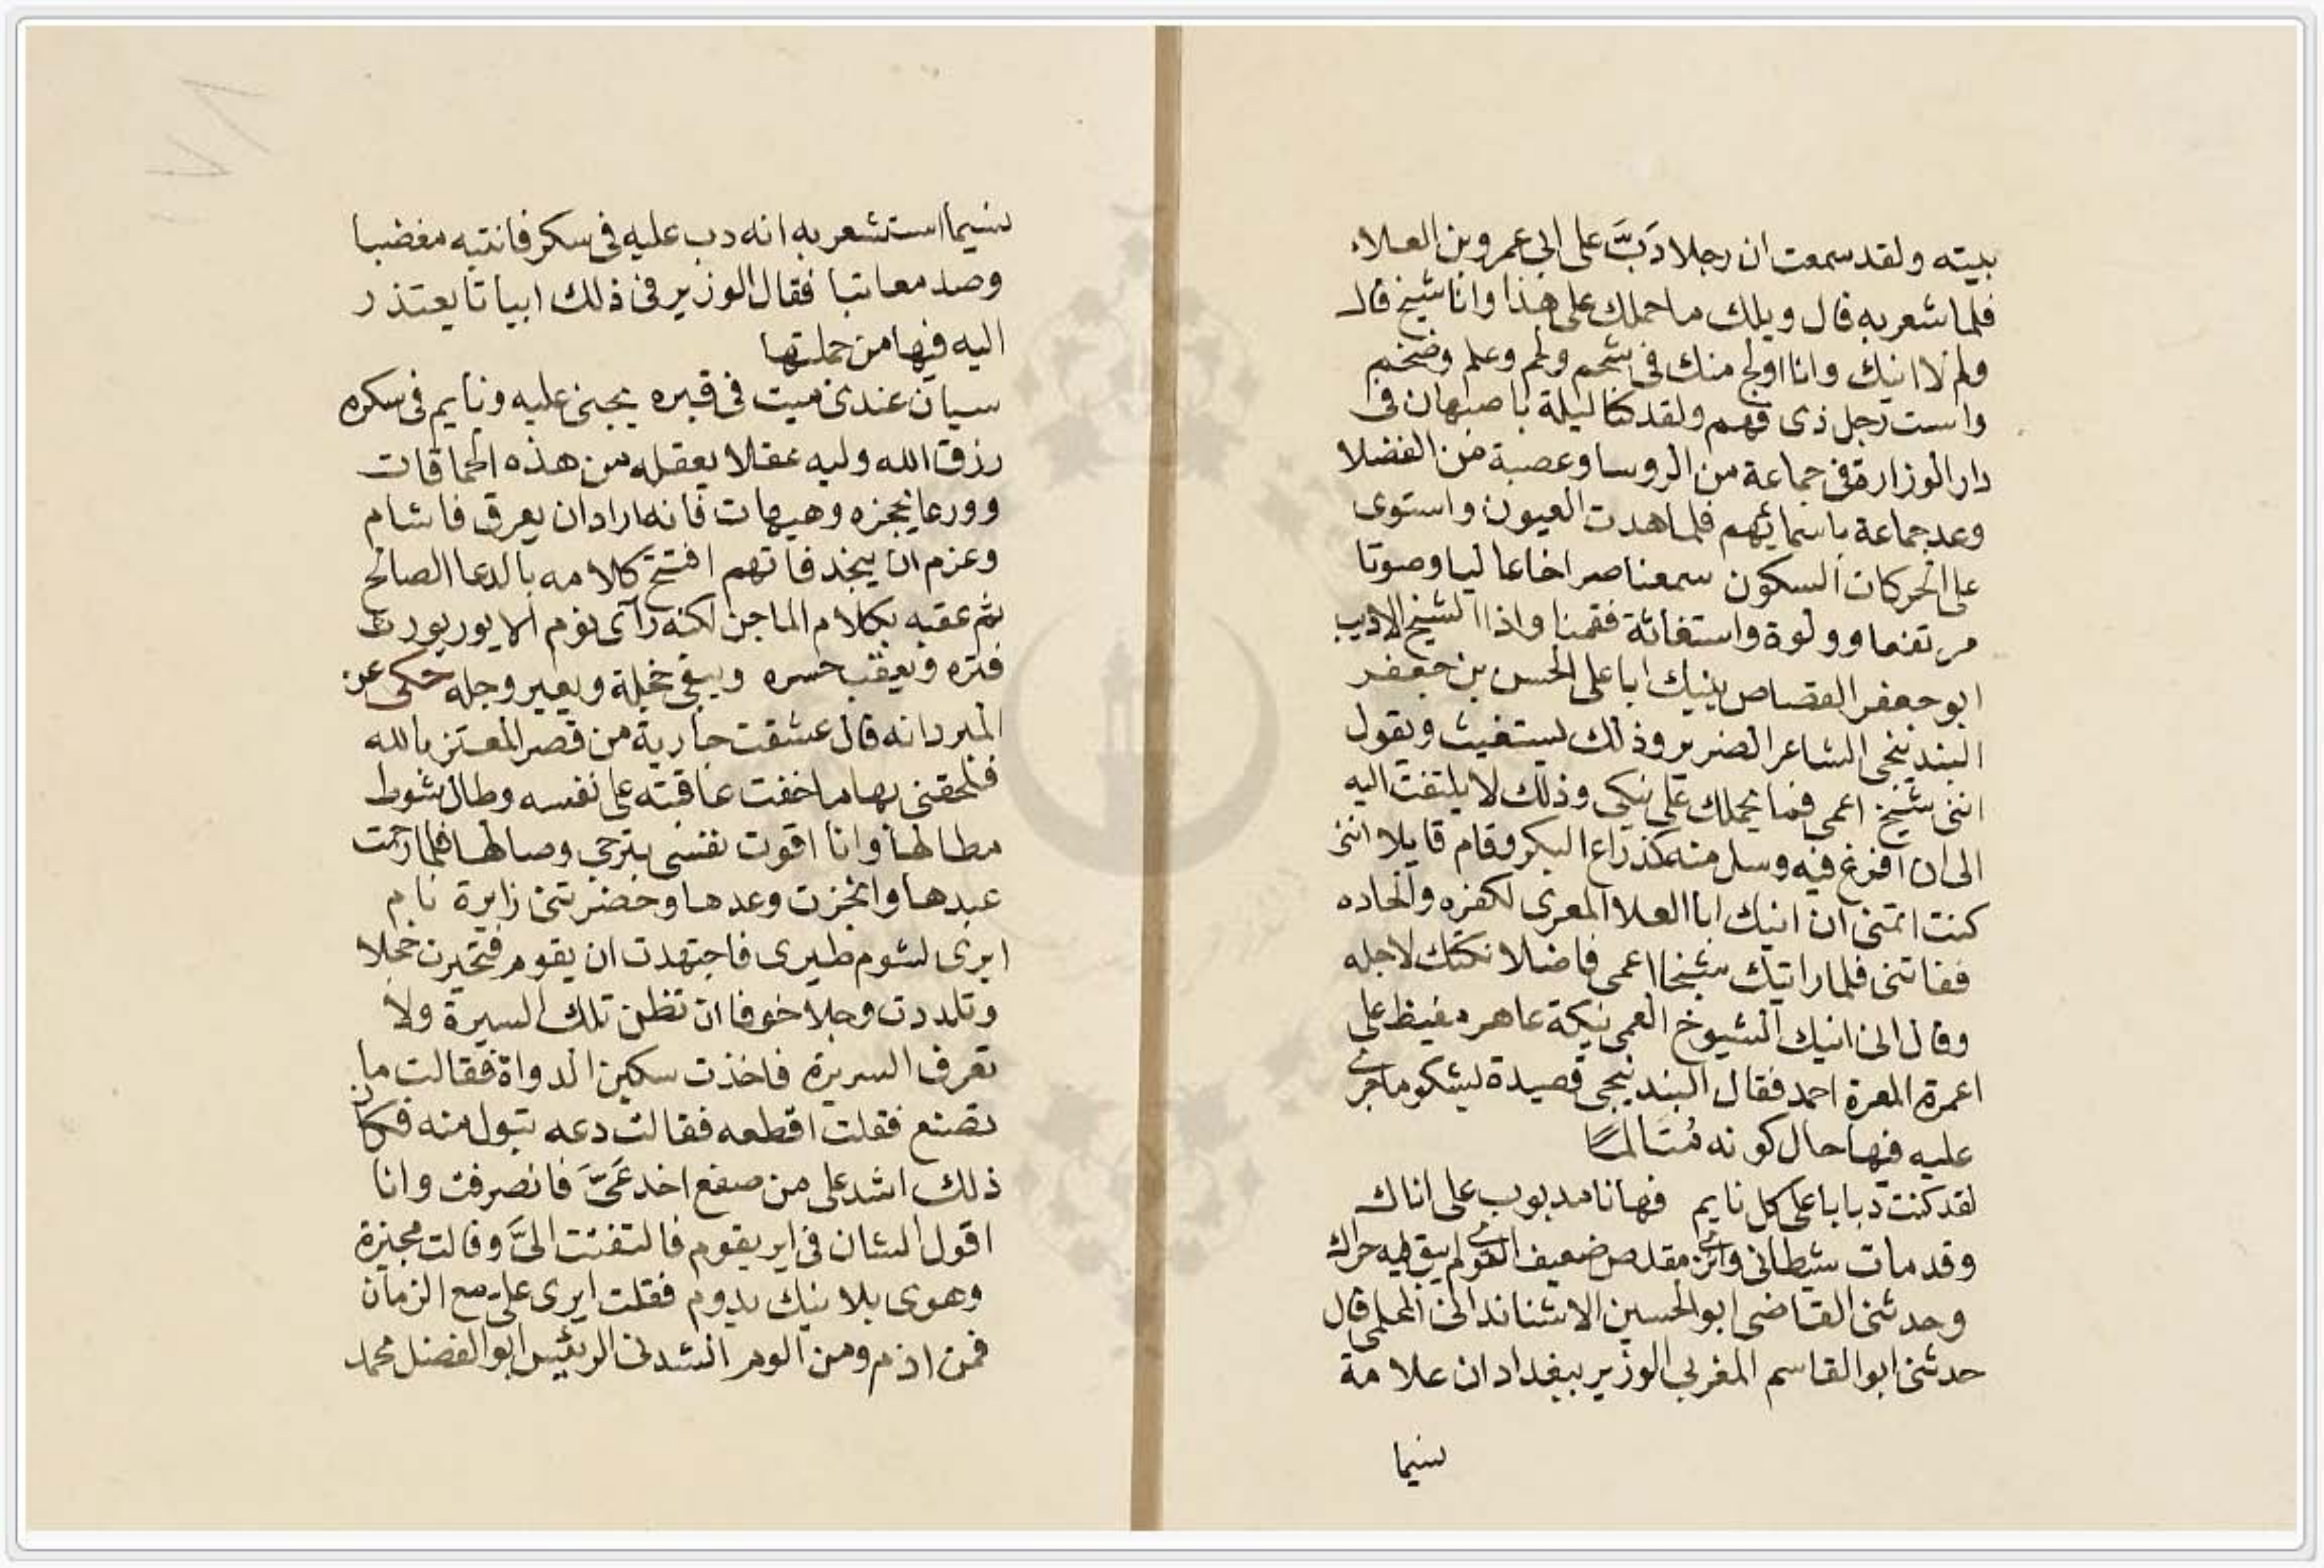 بيته ولقد سمعت ان رجلا دَبَّ على ابي عمرو بن العلاء
فلما شعر به قال ويلك ما حملك على هذا وانا شيخ قال
ولم لا انيك وانا اولج منك في شحم ولحم وعلم وضخم
واست رجل ذى فهم ولقد كنا ليلة باصبهان فى
دار الوزارة فى جماعة من الروسا وعصبة من الفضلا
وعد جماعة باسمائهم فلما هدت العيون واستوى
على الحركات السكون سمعنا صراخا عاليا وصوتا
مرتفعا وولوة واستغاثة فقمنا واذا الشيخ الاديب
ابو جعفر القصاص ينيك ابا على الحسن بن جعفر
البندنيجى الشاعر الضرير وذلك يستغيث ويقول
اننى شيخ اعمى فما يحملك على نيكى وذلك لا يلتفت اليه
الى ان افرغ فيه وسل منه كذراع البكر وقام قايلا اننى
كنت اتمنى ان انيك ابا العلا المعرى لكفره والحاده
ففاتنى فلما رايتك شيخا اعمى فاضلا نكتك لاجله
وقال انى انيك الشيوخ العمى نيكة عاهر مغيظ على
اعمرة المعرة احمد فقال البندنيجى قصيدة يشكو ما جرى
عليه فيها حال كونه مُتَالمًا
لقد كنت دبابا على كل نايم فها نا مدبوب على اناك
وقد مات شيطانى وايرى مقلص ضعيف القوى لم يبق فيه حراك
وحدثنى القاضى ابو الحسين الاشناندانى المحلمى قال
حدثنى ابو القاسم المغربي الوزير ببغداد ان علامة
سيما
سيما استشعر به انه دب عليه فى سكر فانتبه مغضبا
وصد معاتبا فقال الوزير فى ذلك ابياتا يعتذر
اليه فيها من جملتها
سيان عندى ميت فى قبره يجنى عليه ونايم فى سكره
رزق الله وليه عقلا يعقله من هذه الحماقات
وورعا يحجزه وهيهات فانه اراد ان يعرق فاشام
وعزم ان ينجد فاتهم افتتح كلامه بالدعا الصالح
ثم عقبه بكلام الماجن لكنه رآى نوم الايور يورث
فتره ويعقب حسره ويبقى خجلة ويعير وجله حكى عن
المبرد انه قال عشقت جارية من قصر المعتز بالله
فلحقنى بها ما خفت عاقبته على نفسه وطال شوط
مطالها وانا اقوت نفسى بترجى وصالها فلما رحمت
عبدها وانجزت وعدها وحضرتنى زايرة نام
ايرى لشوم طيرى فاجتهدت ان يقوم فتحيرت خجلا
وتلددت وجلا خوفا ان تظن تلك السيرة ولا
تعرف السريرة فاخذت سكين الدواة فقالت ما
تصنع فقلت اقطعه فقالت دعه تبول منه فكان
ذلك اشد على من صفع اخدعَىَّ فانصرفت وانا
اقول الشان فى اير يقوم فالتفتت الىَّ وقالت مجيزة
وهوى بلا نيك يدوم فقلت ايرى علىّ مع الزمان
فمن اذم ومن الوم انشدنى الرئيس ابو الفضل محمد